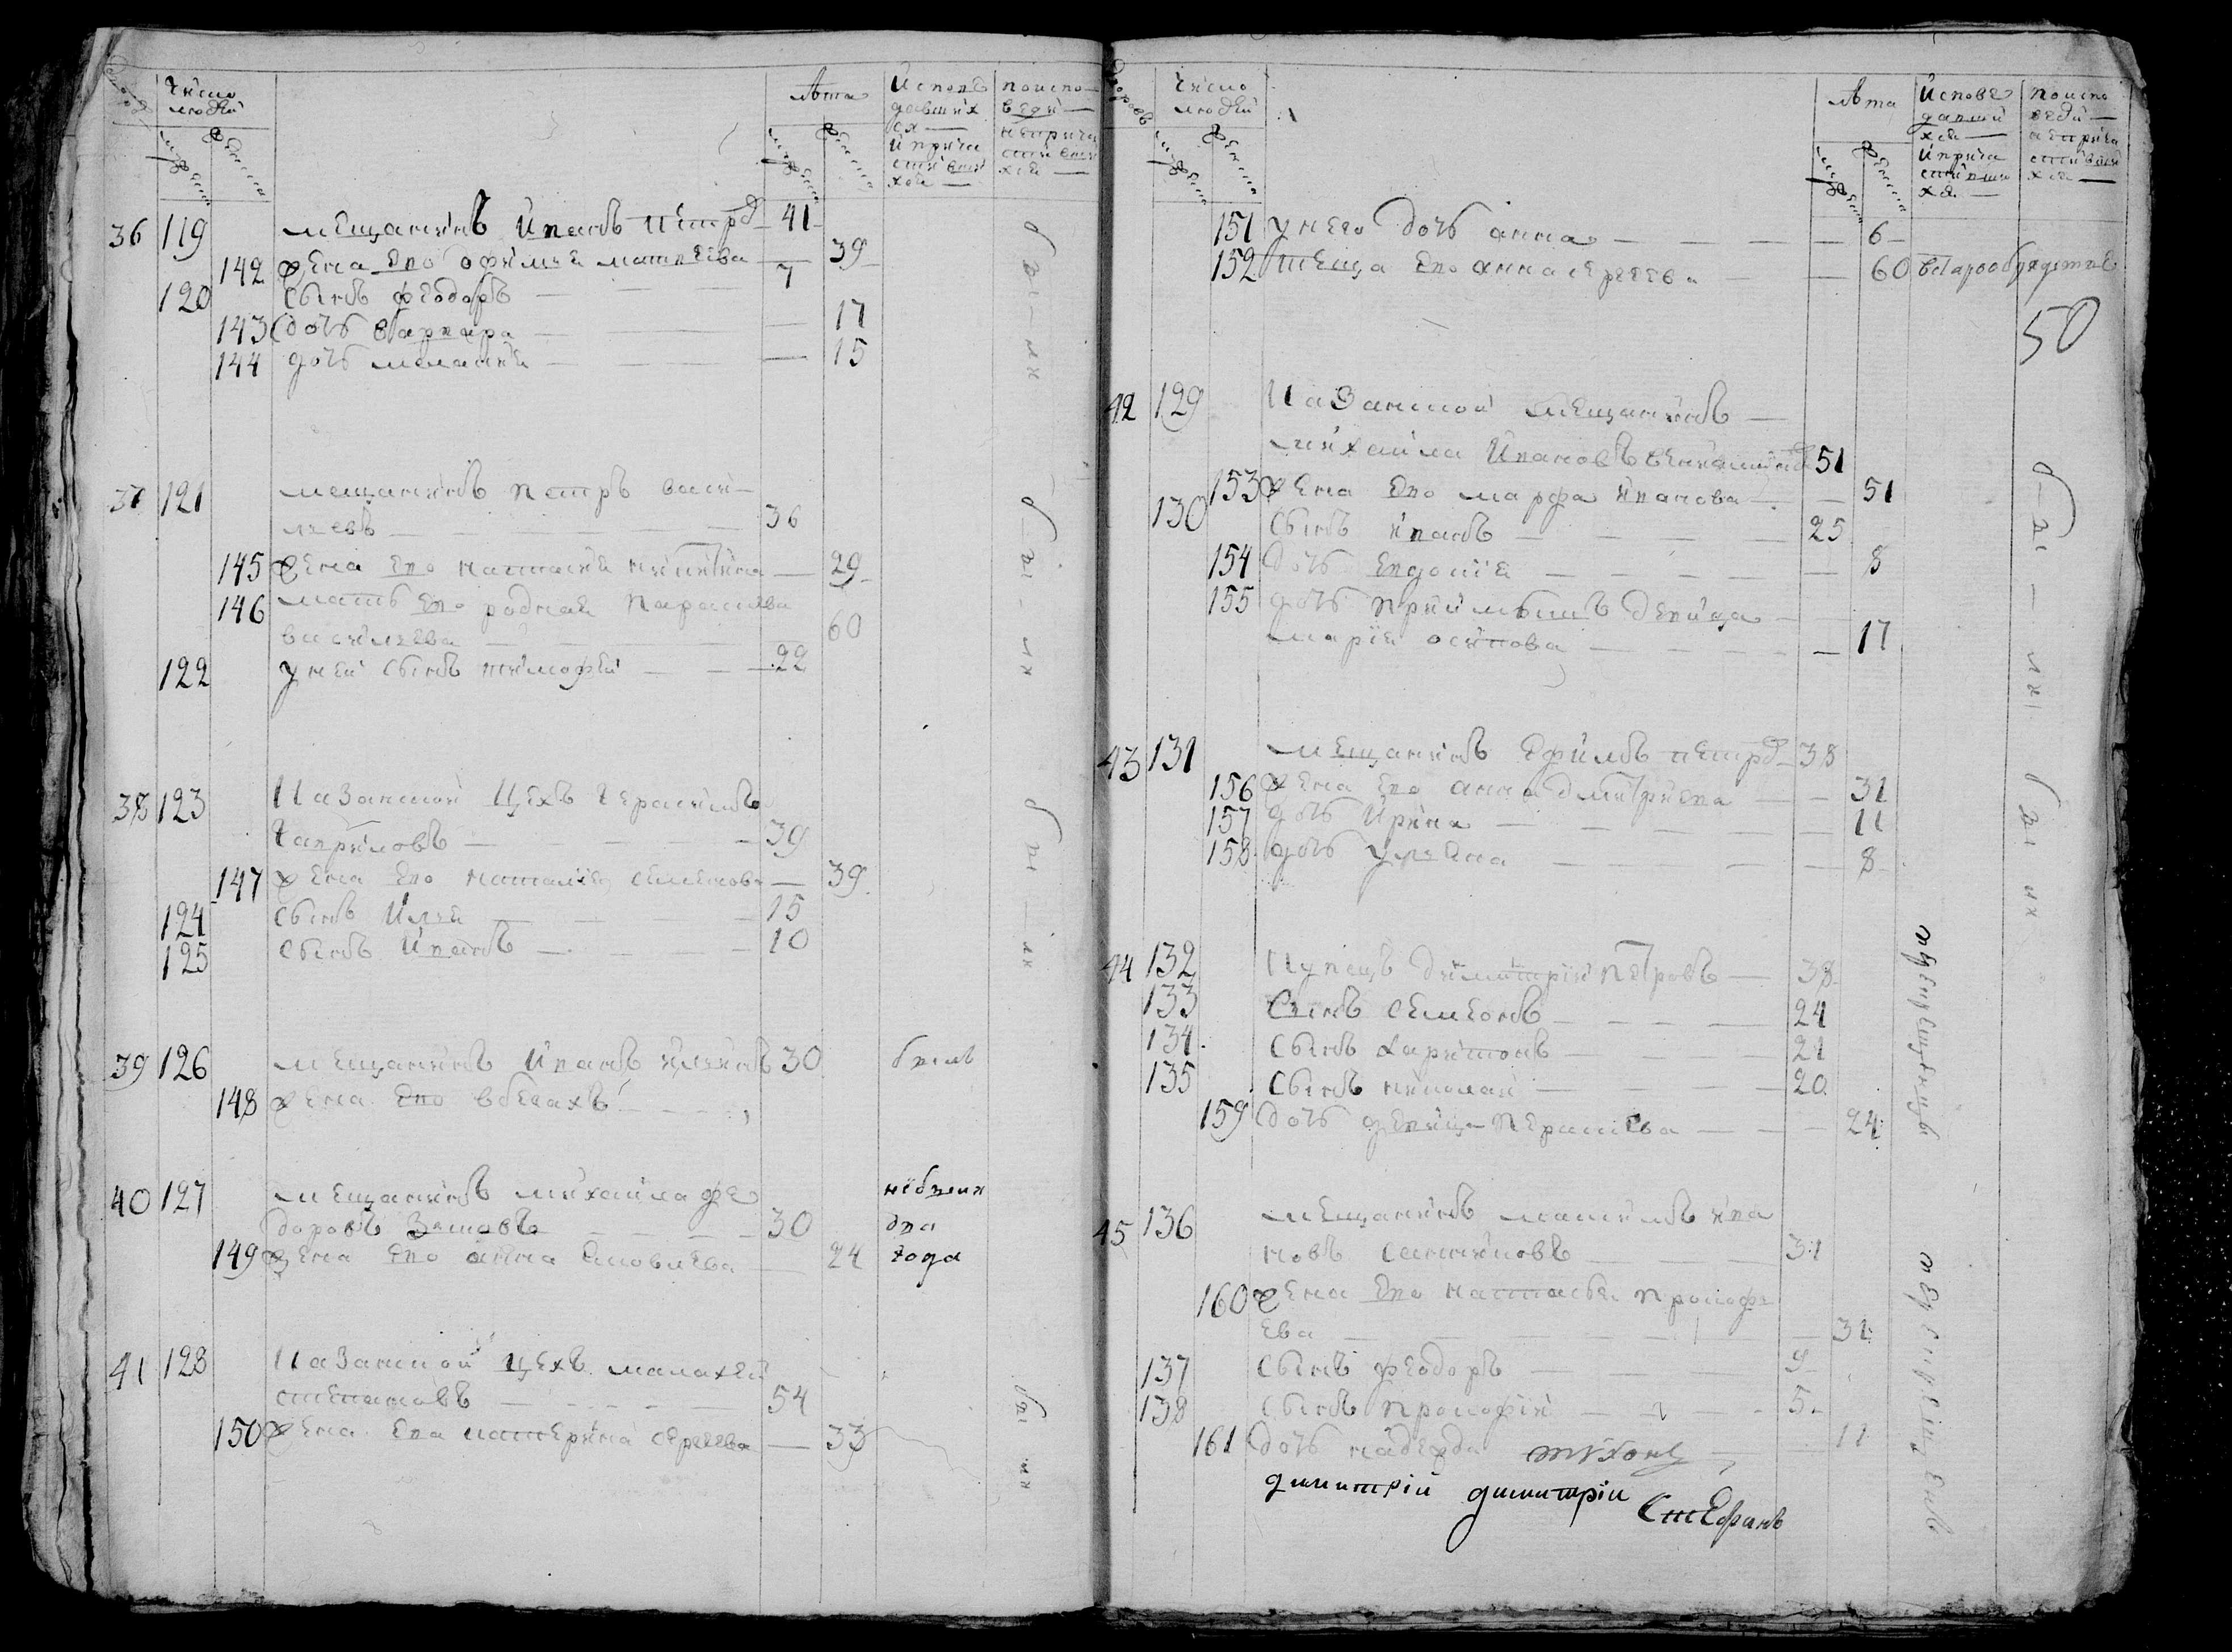 Число
людей
Лѣта
Исповѣ
давших
ся —
и прича
стивши
хся —
по испо
веди —
неприча
стивши
хся —
36 119 мещанинъ Иванъ Петро 41
142 жена Ево офимия матвеева — 39
120 Сынъ Феодоръ — 7
143 дочь варвара — 17
144 дочь мелания — 15
бы-ли
37 121 мещанинъ петръ васи-
лиевъ — 36
145 жена Ево наталия никитина — 29
146 мать Ево родная Параскева
василиева — 60
122 у ней Сынъ тимофей — 22
бы-ли
38 123 Казанской Цехъ Герасимъ
Гавриловъ — 39
147 жена Ево наталия семенова — 39
124 Сынъ Илия — 15
125 Сынъ Иванъ — 10
бы ли
39 126 мещанинъ Иванъ илиинъ 30 былъ
148 жена Ево вбегахъ
40 127 мещанинъ михаила фе небыли
доровъ — 30 два
149 жена Ево анна Яковлева — 24 года
41 128 Казанской Цехъ малахей
степановъ — 54
150 жена Ева катерина сергеева — 33
бы ли
Дворовъ
Число
людей
Лѣта
Исповѣ
давши
хся —
и прича
стивши
хся —
по испо
веди —
неприча
стивши
хся —
151 у него дочь анна — 6
152 теща Ево анна сергеева — 60 встарообрядстве
50
42 129 Казанской мещанинъ —
михаила Ивановъ 51
153 жена Ево марфа иванова — 51
130 Сынъ иванъ — 25
154 дочь Евдокия — 8
155 дочь приимышъ девица
мария осипова — 17
бы-ли
43 131 мещанинъ Ефимъ петро 38
156 жена Ево анна дмитриева — 31
157 дочь Ирина — 11
158 дочь улияна — 8
бы ли
44 132 Купецъ димитрий Петровъ — 38
133 Сынъ Семеонъ — 24
134 Сынъ харитонъ — 21
135 Сынъ николай — 20
159 дочь девица Параскева — 24
45 136 мещанинъ максимъ ива
новъ — 31
160 жена Ево настасья прокофи
ева — 31
137 Сынъ феодоръ — 9
138 Сынъ Прокофий — 5
161 дочь надежда — 11
димитрии димитрии Стефанъ